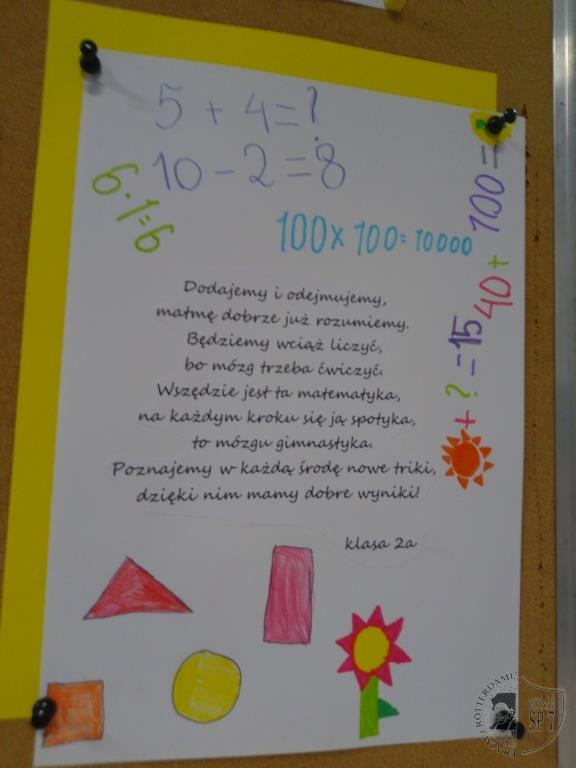 5 + 4 = ?
10 - 2 = 8
6 · 1 = 6
100 x 100 = 10000
40 + 100 =
+ ? = 15
Dodajemy i odejmujemy,
matmę dobrze już rozumiemy.
Będziemy wciąż liczyć,
bo mózg trzeba ćwiczyć.
Wszędzie jest ta matematyka,
na każdym kroku się ją spotyka,
to mózgu gimnastyka.
Poznajemy w każdą środę nowe triki,
dzięki nim mamy dobre wyniki!
klasa 2a
ROTTERDAMU
SP 7